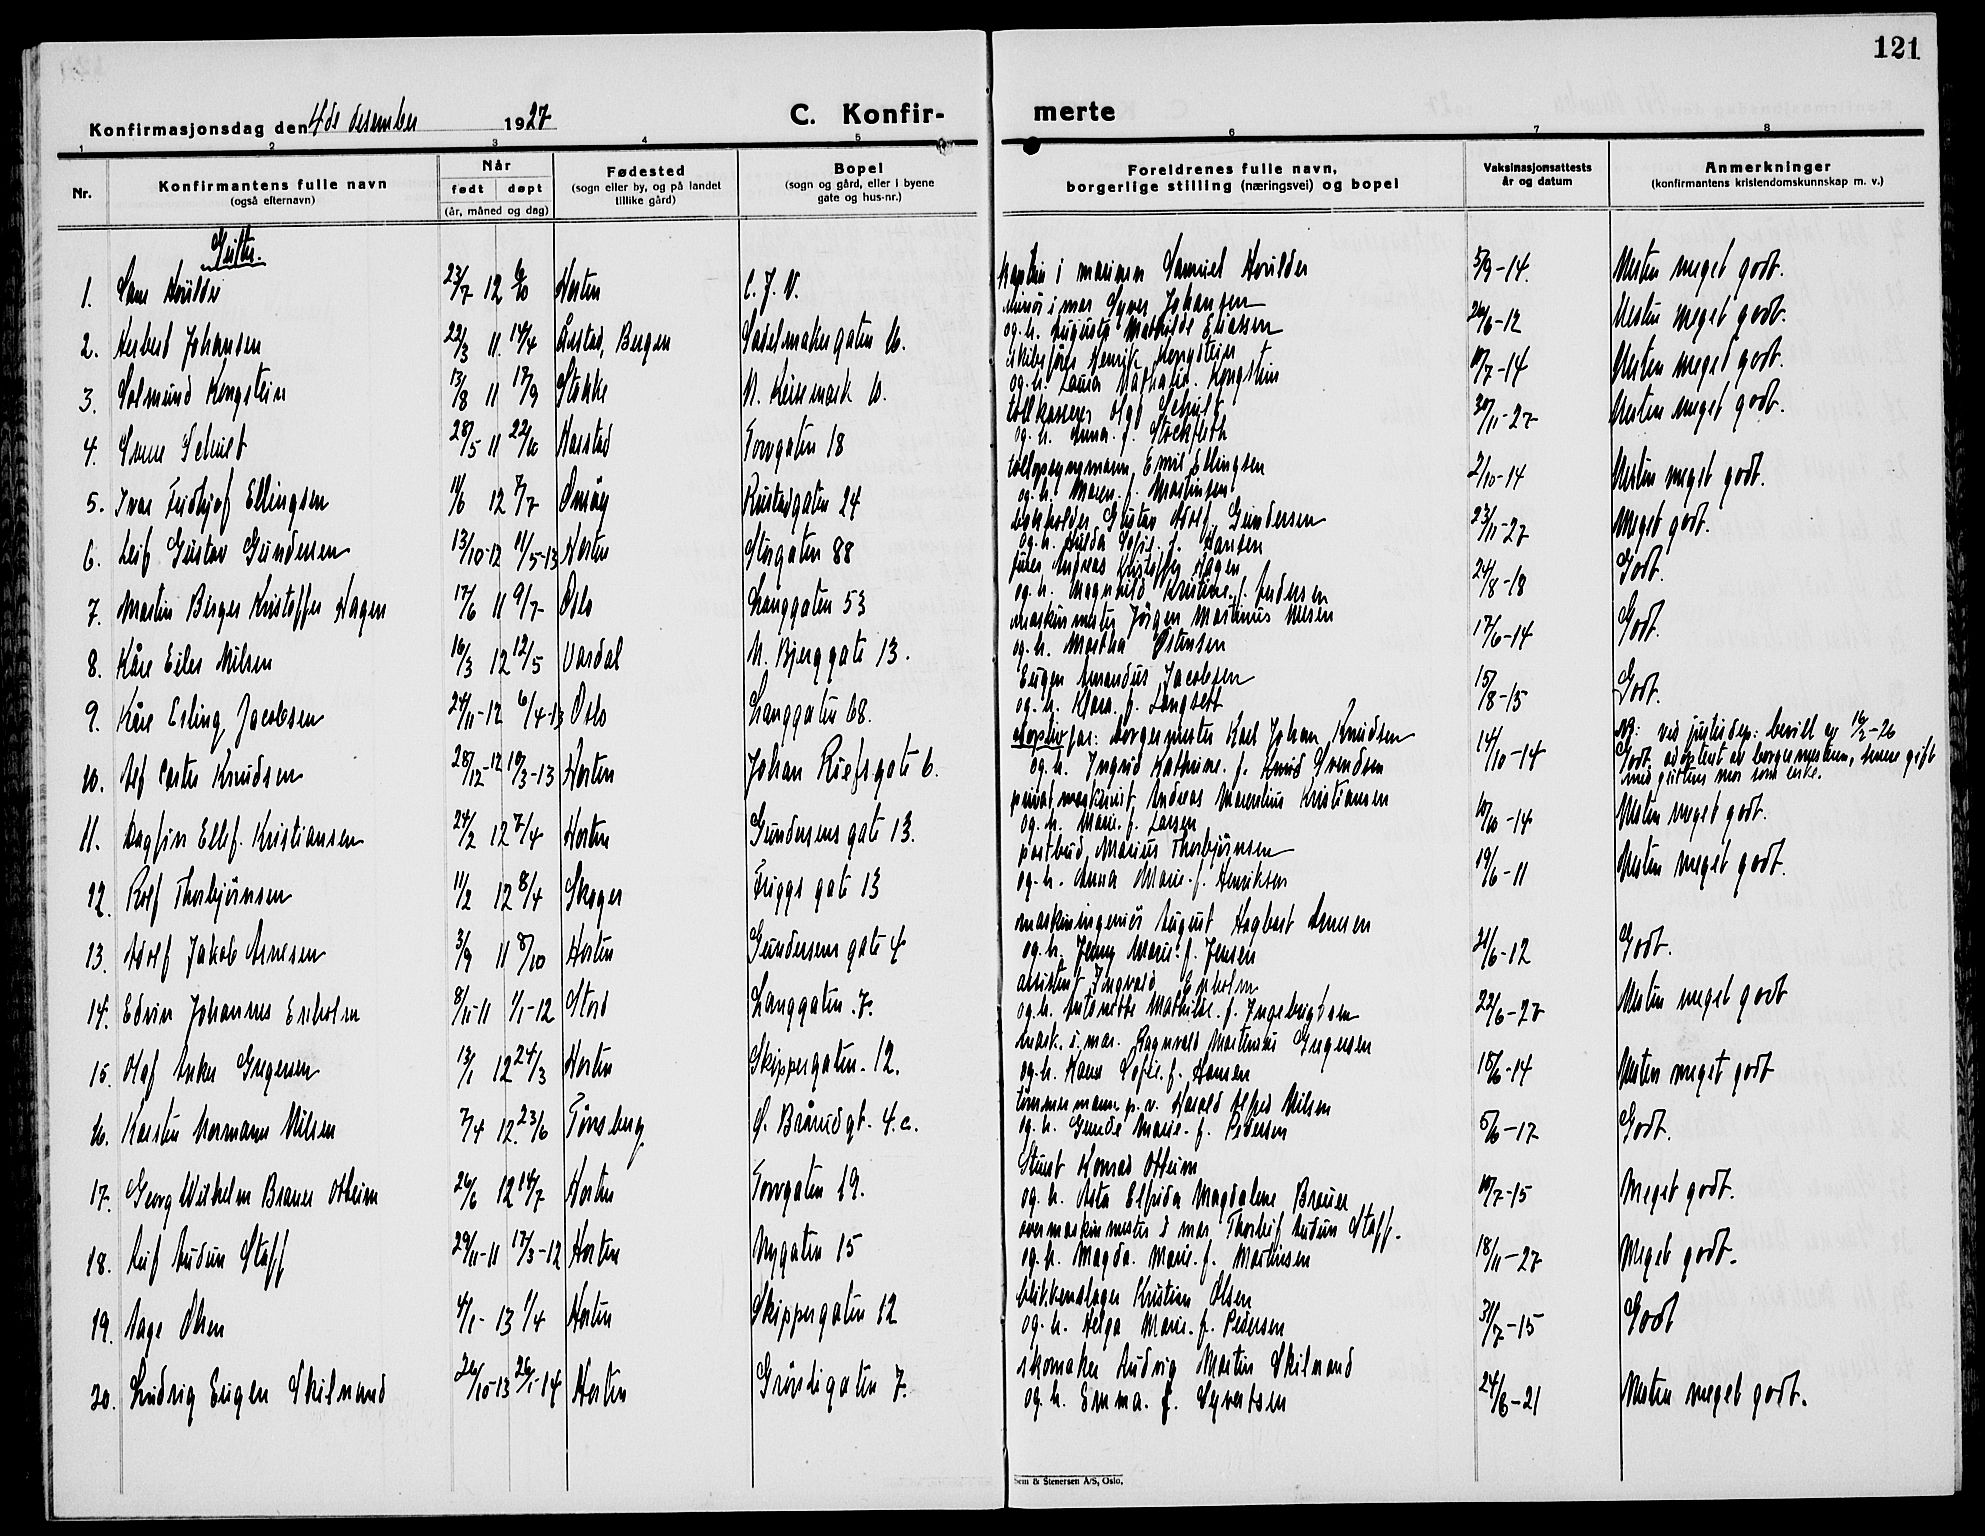 121
Konfirmasjonsdag den 4de desember 1927
C. Konfir-
merte
1 2 3 4 5 6 7 8
Nr.
Konfirmantens fulle navn
(også efternavn)
Når
født døpt
(år, måned og dag)
Fødested
(sogn eller by, og på landet
tillike gård)
Bopel
(sogn og gård, eller i byene
gate og hus-nr.)
Foreldrenes fulle navn,
borgerlige stilling (næringsvei) og bopel
Vaksinasjonsattests
år og datum
Anmerkninger
(konfirmantens kristendomskunnskap m. v.)
Gutter.
1. 23/7 12 Horten C. J. V. i marinen Samuel 5/9-14. Nesten meget godt.
2. Herbert Johansen 22/3 11 14/4 Årstad, Bergen Sadelmakergaten 16. minør i mar. Syver Johansen
og h. Augusta Mathilde Eliassen 26/6-12 Nesten meget godt.
3. Solmund Kongstein 13/8 11 17/9 Stokke N. Keisemark 10. skibsfører Henrik Kongstein
og h. Laura Nathalie Kongstein 10/7-14 Nesten meget godt.
4. 28/5 11 22/10 Harstad Torvgaten 18 tollkasserer Olaf
og h. Anna f. Stockfleth 30/11-27 Nesten meget godt.
5. Ivar Fridtjof Ellingsen 11/6 12 7/7 Rustadgaten 24 tollopsynsmann Emil Ellingsen
og h. Maren f. Martinsen 2/10-14 Nesten meget godt.
6. Leif Gustav Gundersen 13/10-12 11/5-13 Horten Storgaten 88 Gustav Adolf Gundersen
og h. Hulda Sofie f. Hansen 23/11-27 Meget godt.
7. Martin Berger Kristoffer Hagen 17/6 11 9/7 Oslo Langgaten 53 Andreas Kristoffer Hagen
og h. Magnhild Kristine f. Andersen 24/8-18 Godt.
8. Kåre Eiler Nilsen 16/3 12 12/5 Vardal N. Bjerggate 13. maskinmester Jørgen Martinius Nilsen
og h. Martha Østensen 17/6-14 Godt.
9. Kåre Erling Jacobsen 24/11-12 6/4-13 Oslo Langgaten 68. Eugen Amandus Jacobsen
og h. Klara f. Langseth 15/8-15 Godt.
10. Alf Carter Knudsen 28/12-12 10/3-13 Horten Johan Riefsgate 6. adoptivfar: borgermester Karl Johan Knudsen
og h. Ingrid Kathrine f. Svendsen 14/10-14 ved justisdep. bevill. av 16/2-26
Godt. adoptert av borgermesteren, senere gift
med guttens mor som enke.
11. Dagfin Ellef Kristiansen 24/2 12 7/4 Horten Gundersens gate 13. privat maskinist Andreas Marentius Kristiansen
og h. Marie f. Larsen 10/10-14 Nesten meget godt.
12. Rolf Thorbjørnsen 11/2 12 8/4 Skoger Friggs gate 13 postbud Marius Thorbjørnsen
og h. Anna Marie f. Henriksen 19/6-11 Nesten meget godt.
13. Adolf Jakob Arnesen 3/9 11 8/10 Horten Gundersens gate 4 maskiningeniør August Hagbart Arnesen
og h. Jenny Marie f. Jensen 21/6-12 Godt.
14. Edvin Johannes Enholm 8/11-11 1/1-12 Stord Langgaten 7. assistent Ingvald Enholm
og h. Antonette Mathilde f. Ingebrigtsen 22/6-27 Nesten meget godt
15. Olaf Anker Gregersen 13/1 12 24/3 Horten Skippergaten 12. mask. i mar. Ragnvald Martinius Gregersen
og h. Karen Sofie f. Hansen 18/6-14 Nesten meget godt
16. Karsten Normann Nilsen 7/4 12. 23/6 Tønsberg Ø. Brårudgt. 4.c. tømmermann p. v. Harald Alfred Nilsen
og h. Gunda Marie f. Pedersen 5/6-17 Godt.
17. Georg Wilhelm Brauer Ottheim 26/6 12 14/7 Horten Torvgaten 19. Stuert Konrad Ottheim
og h. Asta Elfrida Magdalene Brauer 10/7-15 Meget godt.
18. Leif Audun Staff 29/11-11 17/3-12 Horten Nygaten 15 overmaskinmester i mar. Thorleif Audun Staff.
og h. Magda Marie f. Martinsen 18/11-27 Meget godt.
19. Aage Olsen 4/1- 13 1/4 Horten Skippergaten 12 blikkenslager Kristian Olsen
og h. Helga Marie f. Pedersen 31/7-15 Godt
20. Ludvig Eugen Skilnand 26/10-13 26/1-14 Horten Grøndigaten 7. skomaker Ludvig Martin Skilnand
og h. Emma f. Syvertsen 24/6-21 Nesten meget godt.
Sem & Stenersen A/S, Oslo.